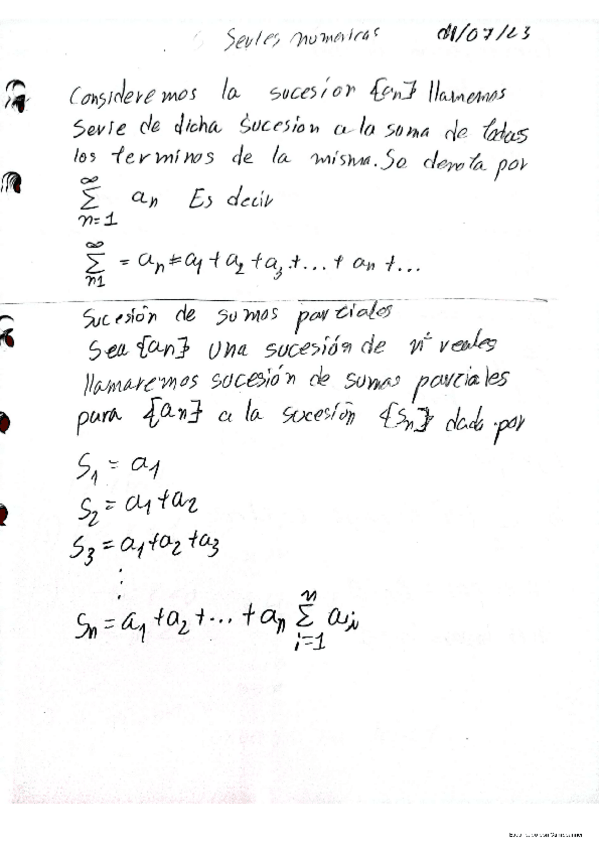 Series numericas 01/07/23
Consideremos la sucesion {an} llamemos
Serie de dicha sucesion a la suma de todas
los terminos de la misma. Se denota por
∞
∑ an Es decir
n=1
∞
∑ = an = a1 + a2 + a3 + ... + an + ...
n1
Sucesión de sumas parciales
Sea {an} una sucesión de nº reales
llamaremos sucesión de sumas parciales
para {an} a la sucesión {sn} dada por
S1 = a1
S2 = a1 + a2
S3 = a1 + a2 + a3
⋮
Sn = a1 + a2 + ... + an ∑ ai
n
i=1